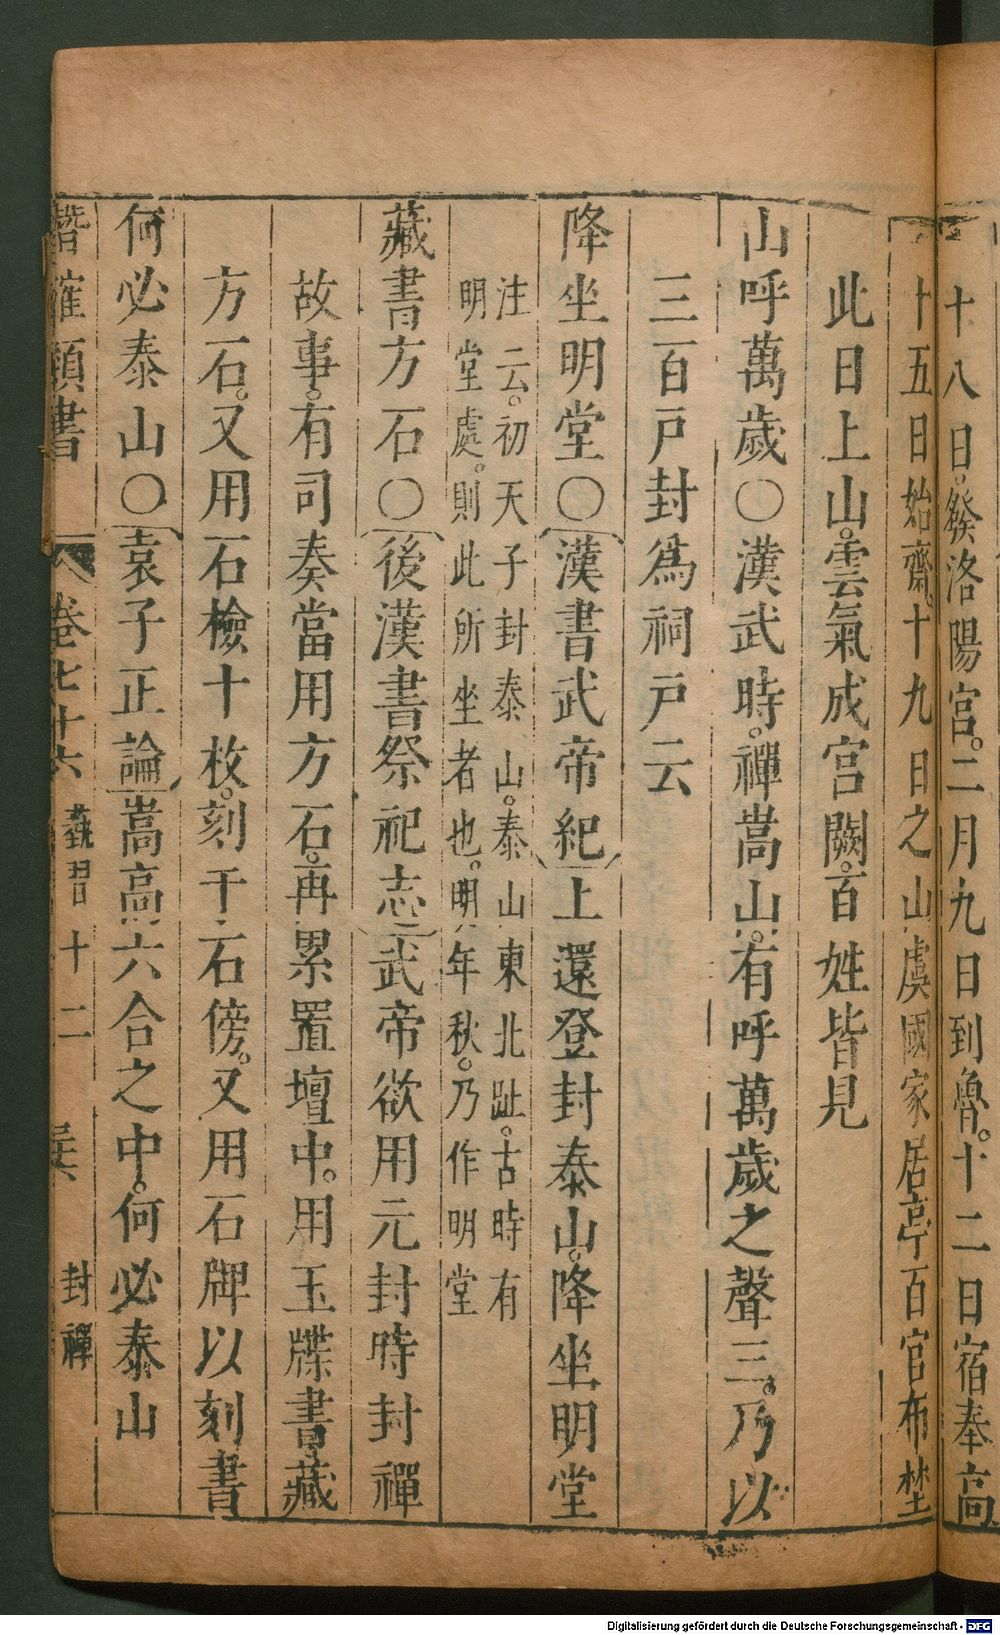 十八日。發洛陽宮。二月九日到魯。十二日宿奉高
十五日始齋。十九日之山虞國家居亭百官布埜
此日上山。雲氣成宮闕。百姓皆見
山呼萬歲〇漢武時。禪嵩山。有呼萬歲之聲三。乃以
三百戸封爲祠戸云
降坐明堂〇漢書武帝紀上還登封泰山。降坐明堂
注云。初天子封泰山。泰山東北趾。古時有
明堂處。則此所坐者也。明年秋。乃作明堂
藏書方石〇後漢書祭祀志武帝欲用元封時封禪
故事。有司奏當用方石。再累置壇中。用玉牒書。藏
方石。又用石檢十枚。刻于石傍。又用石牌以刻書
何必泰山〇袁子正論嵩高六合之中。何必泰山
潛確類書 卷七十六 藝習十二 封禪
Digitalisierung gefördert durch die Deutsche Forschungsgemeinschaft - DFG